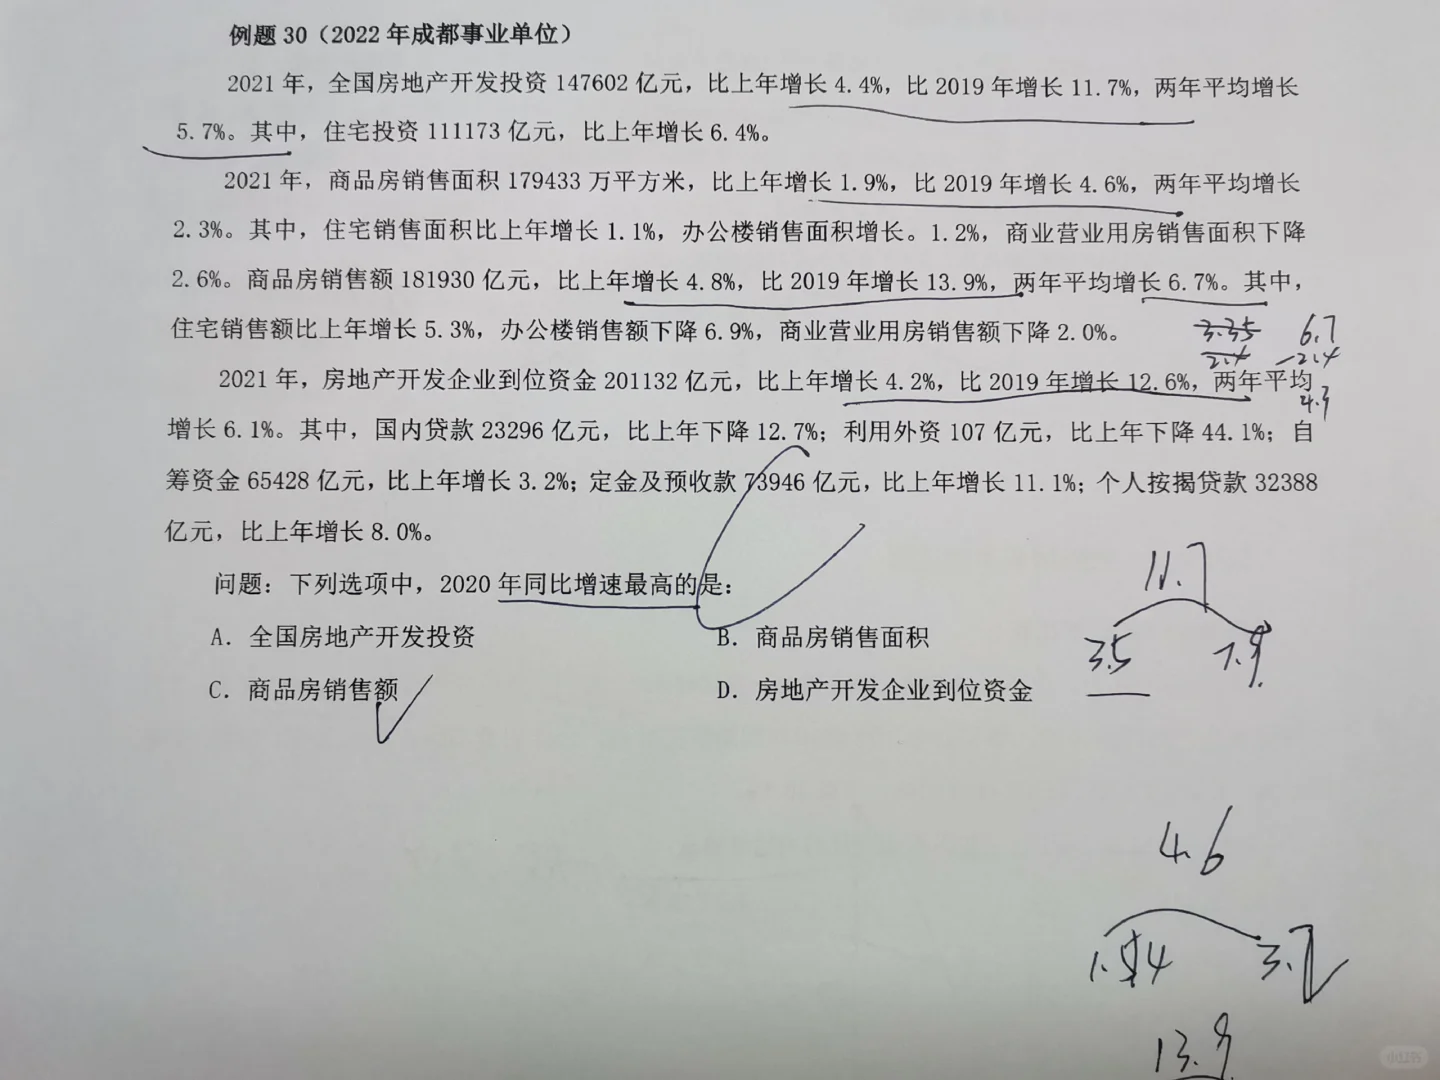 例题 30（2022 年成都事业单位）
2021 年，全国房地产开发投资 147602 亿元，比上年增长 4.4%，比 2019 年增长 11.7%，两年平均增长
5.7%。其中，住宅投资 111173 亿元，比上年增长 6.4%。
2021 年，商品房销售面积 179433 万平方米，比上年增长 1.9%，比 2019 年增长 4.6%，两年平均增长
2.3%。其中，住宅销售面积比上年增长 1.1%，办公楼销售面积增长。1.2%，商业营业用房销售面积下降
2.6%。商品房销售额 181930 亿元，比上年增长 4.8%，比 2019 年增长 13.9%，两年平均增长 6.7%。其中，
住宅销售额比上年增长 5.3%，办公楼销售额下降 6.9%，商业营业用房销售额下降 2.0%。
3.35 6.7
2.4 -2.4
2021 年，房地产开发企业到位资金 201132 亿元，比上年增长 4.2%，比 2019 年增长 12.6%，两年平均
4.3
增长 6.1%。其中，国内贷款 23296 亿元，比上年下降 12.7%；利用外资 107 亿元，比上年下降 44.1%；自
筹资金 65428 亿元，比上年增长 3.2%；定金及预收款 73946 亿元，比上年增长 11.1%；个人按揭贷款 32388
亿元，比上年增长 8.0%。
问题：下列选项中，2020 年同比增速最高的是：
A. 全国房地产开发投资
B. 商品房销售面积
C. 商品房销售额
D. 房地产开发企业到位资金
11.7
3.5 7.9
4.6
3.2
13.9
小红书